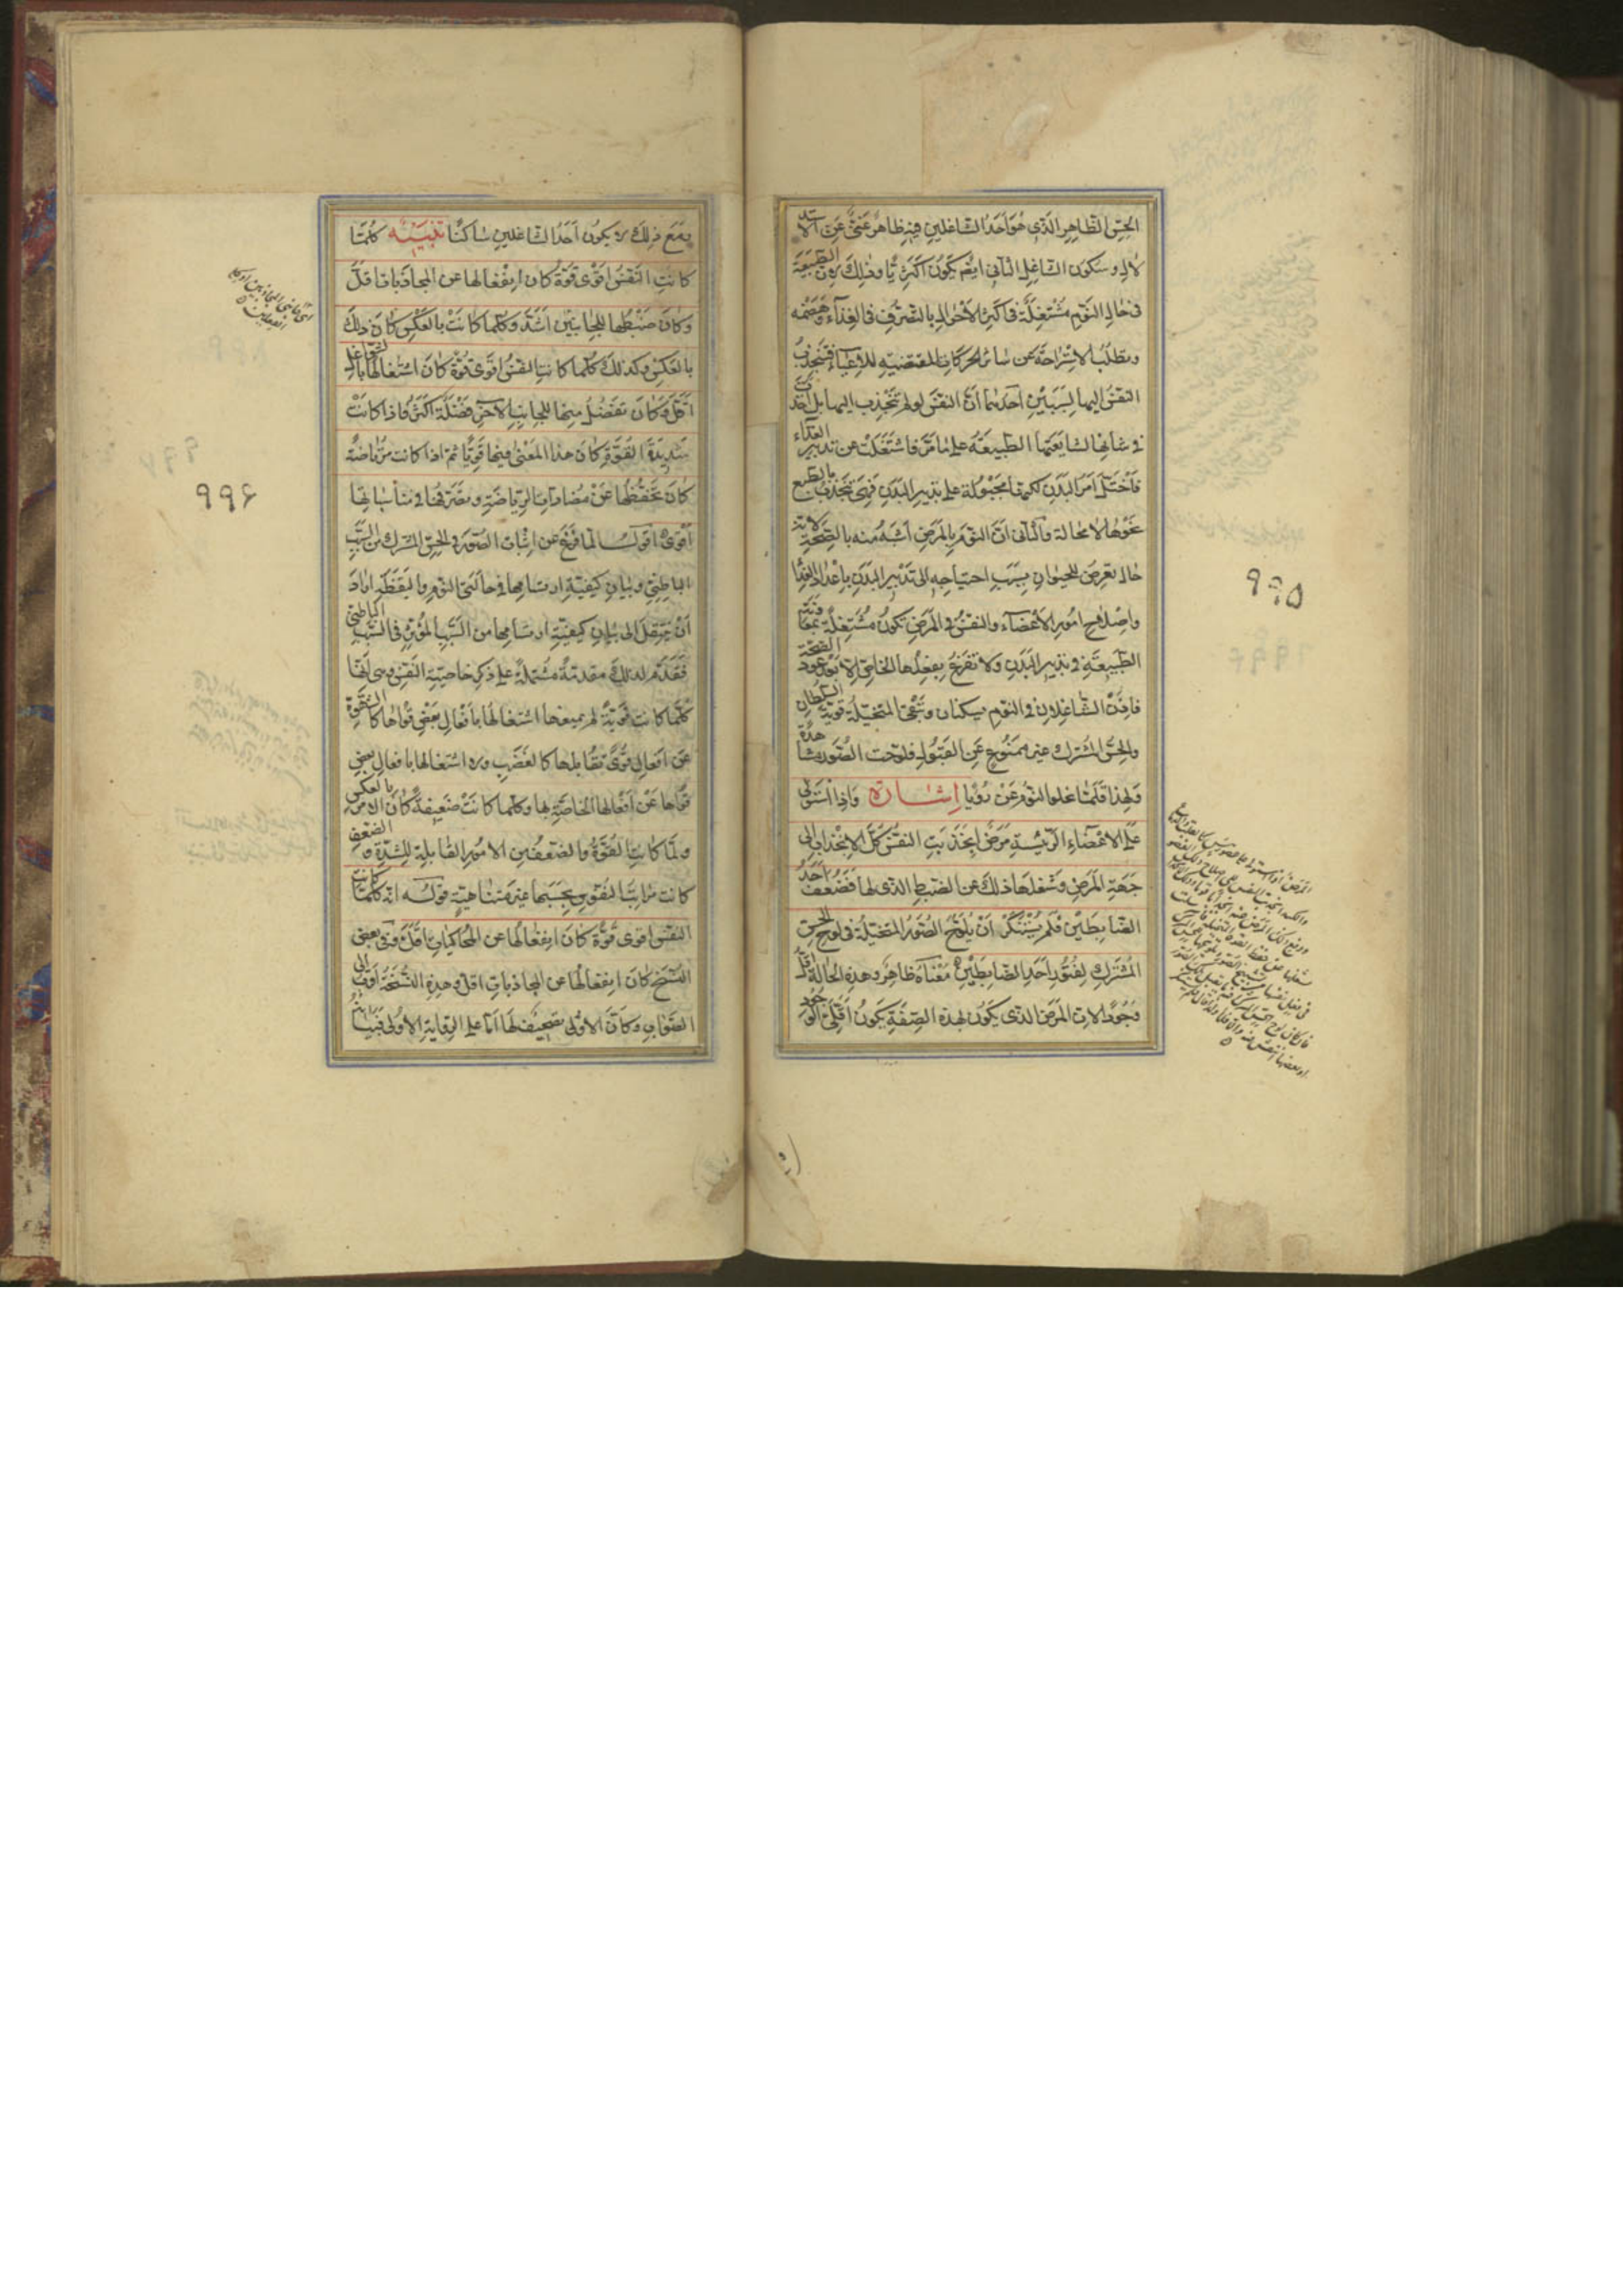 الحِسّ الظاهر الذى هو احد الشاغلين فيه ظاهر غنىّ عن الاستد
لال وسكون الشاغل الثانى ايضا يكون اكثريّا وذلك لان الطبيعة
فى حال النوم مشتغلة فى اكثر الاحوال بالتصرف فى الغذاء وهضمه
وبطلب الاستراحة عن سائر الحركات المقتضيه للاعياء فينجذب
النفس اليها لسببين احدهما ان النفس لو لم تنجذب اليها بل اخذت
فى شانها لشايعتها الطبيعة على ما مرّ فاشتغلت عن تدبير الغذاء
فاختل امر البدن لكنها مجبولة على تدبير البدن فهى تنجذب بالطبع
نحوها لا محالة والثانى ان النوم بالمرض اشبه منه بالصحة لانه
حال تعرض للحيوان بسبب احتياجه الى تدبير البدن باعداد الغذا
واصلاح امور الاعضاء والنفس فى المرض تكون مشتغلة بمعاونة
الطبيعة فى تدبير البدن ولا تفرغ بفعلها الخاص الا بعد عود الصحة
فاذن الشاغلان فى النوم يسكنان وتبقى المتخيلة قوية السلطان
والحس المشترك غير ممنوع عن القبول فلوحت الصور مشاهدة
ولهذا قلما يخلوا النوم عن رؤيا اشارة واذا استولى
على الاعضاء الرئيسة مرض انجذبت النفس كل الانجذاب الى
جهة المرض وشغلها ذلك عن الضبط الذى لها فضعف احد
الضابطين فلم يستنكر ان يلوح الصور المتخيلة فى لوح الحس
المشترك لفتور احد الضابطين معناه ظاهر وهذه الحالة اقل
وجودا لان المرض الذى يكون بهذه الصفة يكون اقلى الوجود
٩٩٥
ومع ذلك لا يكون احد الشاغلين ساكنا تنبيه كلما
كانت النفس اقوى قوة كان انفعالها عن المجاذبات اقلّ
وكان ضبطها للجانبين اشدّ وكلما كانت بالعكس كان ذلك
بالعكس وكذلك كلما كانت النفس اقوى قوة كان اشتغالها بالشواغل
اقل وكان تفضل منها للجانب الآخر فضلة اكثر فاذا كانت
شديدة القوة كان هذا المعنى فيها قويا ثم اذا كانت مرتاضة
كان تحفظها عن مضادات الرياضة وتصرفها فى مناسباتها
اقوى اقول لما فرغ عن اثبات الصور فى الحس المشترك من السبب
الباطنى وبيان كيفية ارتسامها فى حالتى النوم واليقظة اراد
ان ينتقل الى بيان كيفية ارتسامها من السبب المؤثر فى السبب الباطنى
فقدم لذلك مقدمة مشتملة على ذكر خاصية النفس وهى انها
كلما كانت قوية لم يمنعها اشتغالها بافعال بعض قواها كالشهوة
عن افعال قوى تقابلها كالغضب ولا اشتغالها بافعال بعض
قواها عن افعالها الخاصة بها وكلما كانت ضعيفة كان الامر بالعكس
ولما كانت القوة والضعف من الامور القابلة للشدة والضعف
كانت مراتب النفوس بحسبها غير متناهية قوله انه كلما كانت
النفس اقوى قوة كان انفعالها عن المحاكيات اقل وفى بعض
النسخ كان انفعالها عن المجاذبات اقل وهذه النسخة اقرب الى
الصواب وكأن الاولى تصحيف لها اما على الرواية الاولى فبيانها
٩٩۶